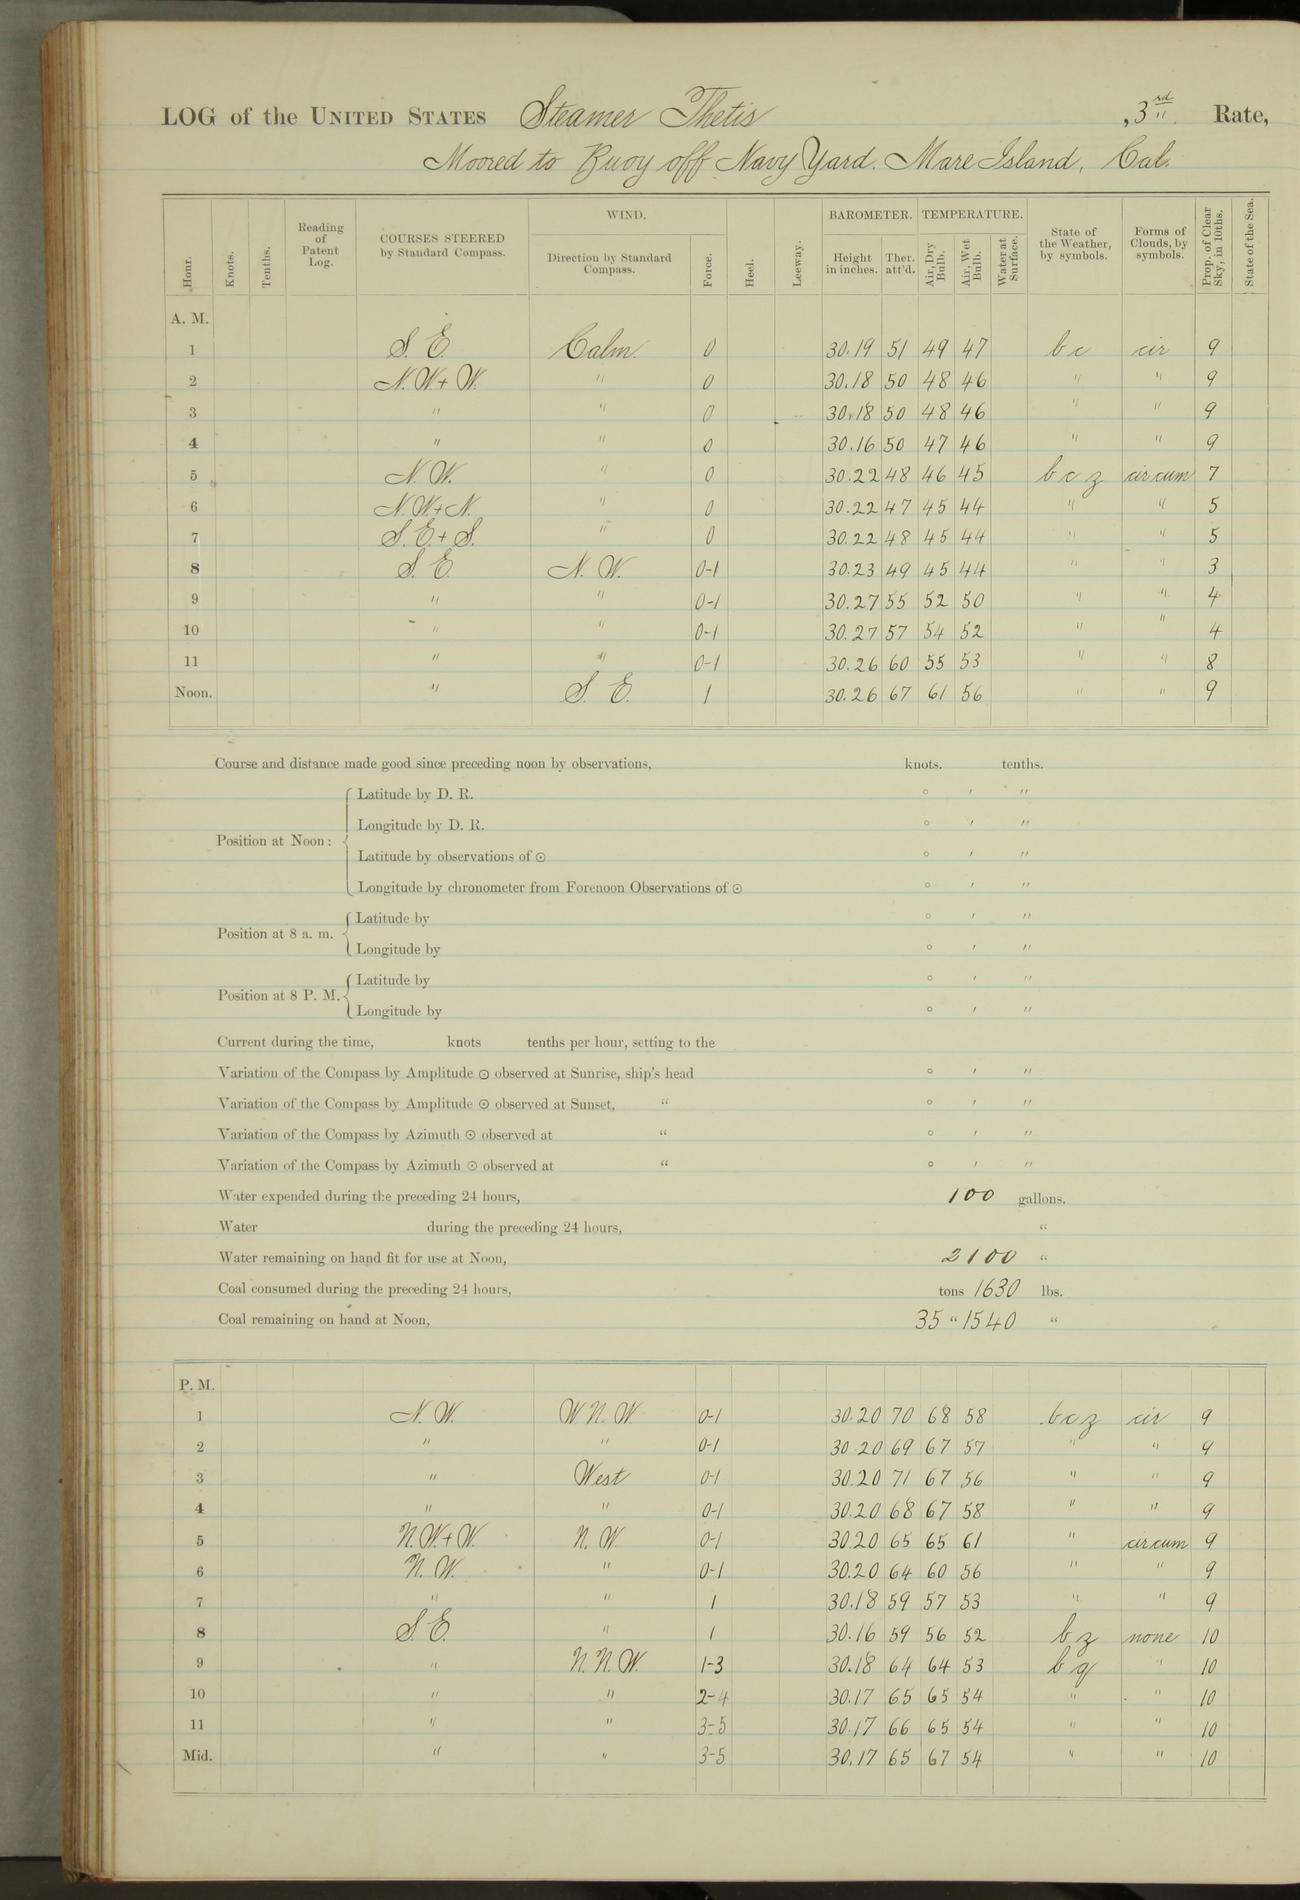 LOG of the UNITED STATES Steamer Thetis, 3rd Rate,
Moored to Buoy off Navy Yard. Mare Island, Cal.
Hour. Knots. Tenths. Reading of Patent Log. COURSES STEERED by Standard Compass. WIND. Direction by Standard Compass. Force. Heel. Leeway. BAROMETER. Height in inches. Ther. att'd. TEMPERATURE. Air, Dry Bulb. Air, Wet Bulb. Water at Surface. State of the Weather, by symbols. Forms of Clouds, by symbols. Prop. of Clear Sky, in 10ths. State of the Sea.
A. M.
1 S. E. Calm. 0 30.19 51 49 47 b c cir 9
2 N. W + W. " 0 30.18 50 48 46 " " 9
3 " " 0 30.18 50 48 46 " " 9
4 " " 0 30.16 50 47 46 " " 9
5 N. W. " 0 30.22 48 46 45 b c z cir cum 7
6 N. W. + N. " 0 30.22 47 45 44 " " 5
7 S. E. + S. " 0 30.22 48 45 44 " " 5
8 S. E. N. W. 0-1 30.23 49 45 44 " " 3
9 " " 0-1 30.27 55 52 50 " " 4
10 " " 0-1 30.27 57 54 52 " " 4
11 " " 0-1 30.26 60 55 53 " " 8
Noon. " S. E. 1 30.26 67 61 56 " " 9
Course and distance made good since preceding noon by observations, knots. tenths.
Position at Noon:
Latitude by D. R. ° ′ ″
Longitude by D. R. ° ′ ″
Latitude by observations of ☉ ° ′ ″
Longitude by chronometer from Forenoon Observations of ☉ ° ′ ″
Position at 8 a. m.
Latitude by ° ′ ″
Longitude by ° ′ ″
Position at 8 P. M.
Latitude by ° ′ ″
Longitude by ° ′ ″
Current during the time, knots tenths per hour, setting to the
Variation of the Compass by Amplitude ☉ observed at Sunrise, ship's head ° ′ ″
Variation of the Compass by Amplitude ☉ observed at Sunset, “ ° ′ ″
Variation of the Compass by Azimuth ☉ observed at “ ° ′ ″
Variation of the Compass by Azimuth ☉ observed at “ ° ′ ″
Water expended during the preceding 24 hours, 100 gallons.
Water during the preceding 24 hours, “
Water remaining on hand fit for use at Noon, 2100 “
Coal consumed during the preceding 24 hours, tons 1630 lbs.
Coal remaining on hand at Noon, 35 “ 1540 “
P. M.
1 N. W. W N. W 0-1 30.20 70 68 58 b c z cir 9
2 " " 0-1 30 20 69 67 57 " " 9
3 " West 0-1 30.20 71 67 56 " " 9
4 " " 0-1 30.20 68 67 58 " " 9
5 N. W. + W. N. W. 0-1 30.20 65 65 61 " cir cum 9
6 N. W. " 0-1 30.20 64 60 56 " " 9
7 " " 1 30.18 59 57 53 " " 9
8 S. E. " 1 30.16 59 56 52 b z none 10
9 " N. N. W. 1-3 30.18 64 64 53 b q " 10
10 " " 2-4 30.17 65 65 54 " " 10
11 " " 3-5 30.17 66 65 54 " " 10
Mid. " " 3-5 30.17 65 67 54 " " 10